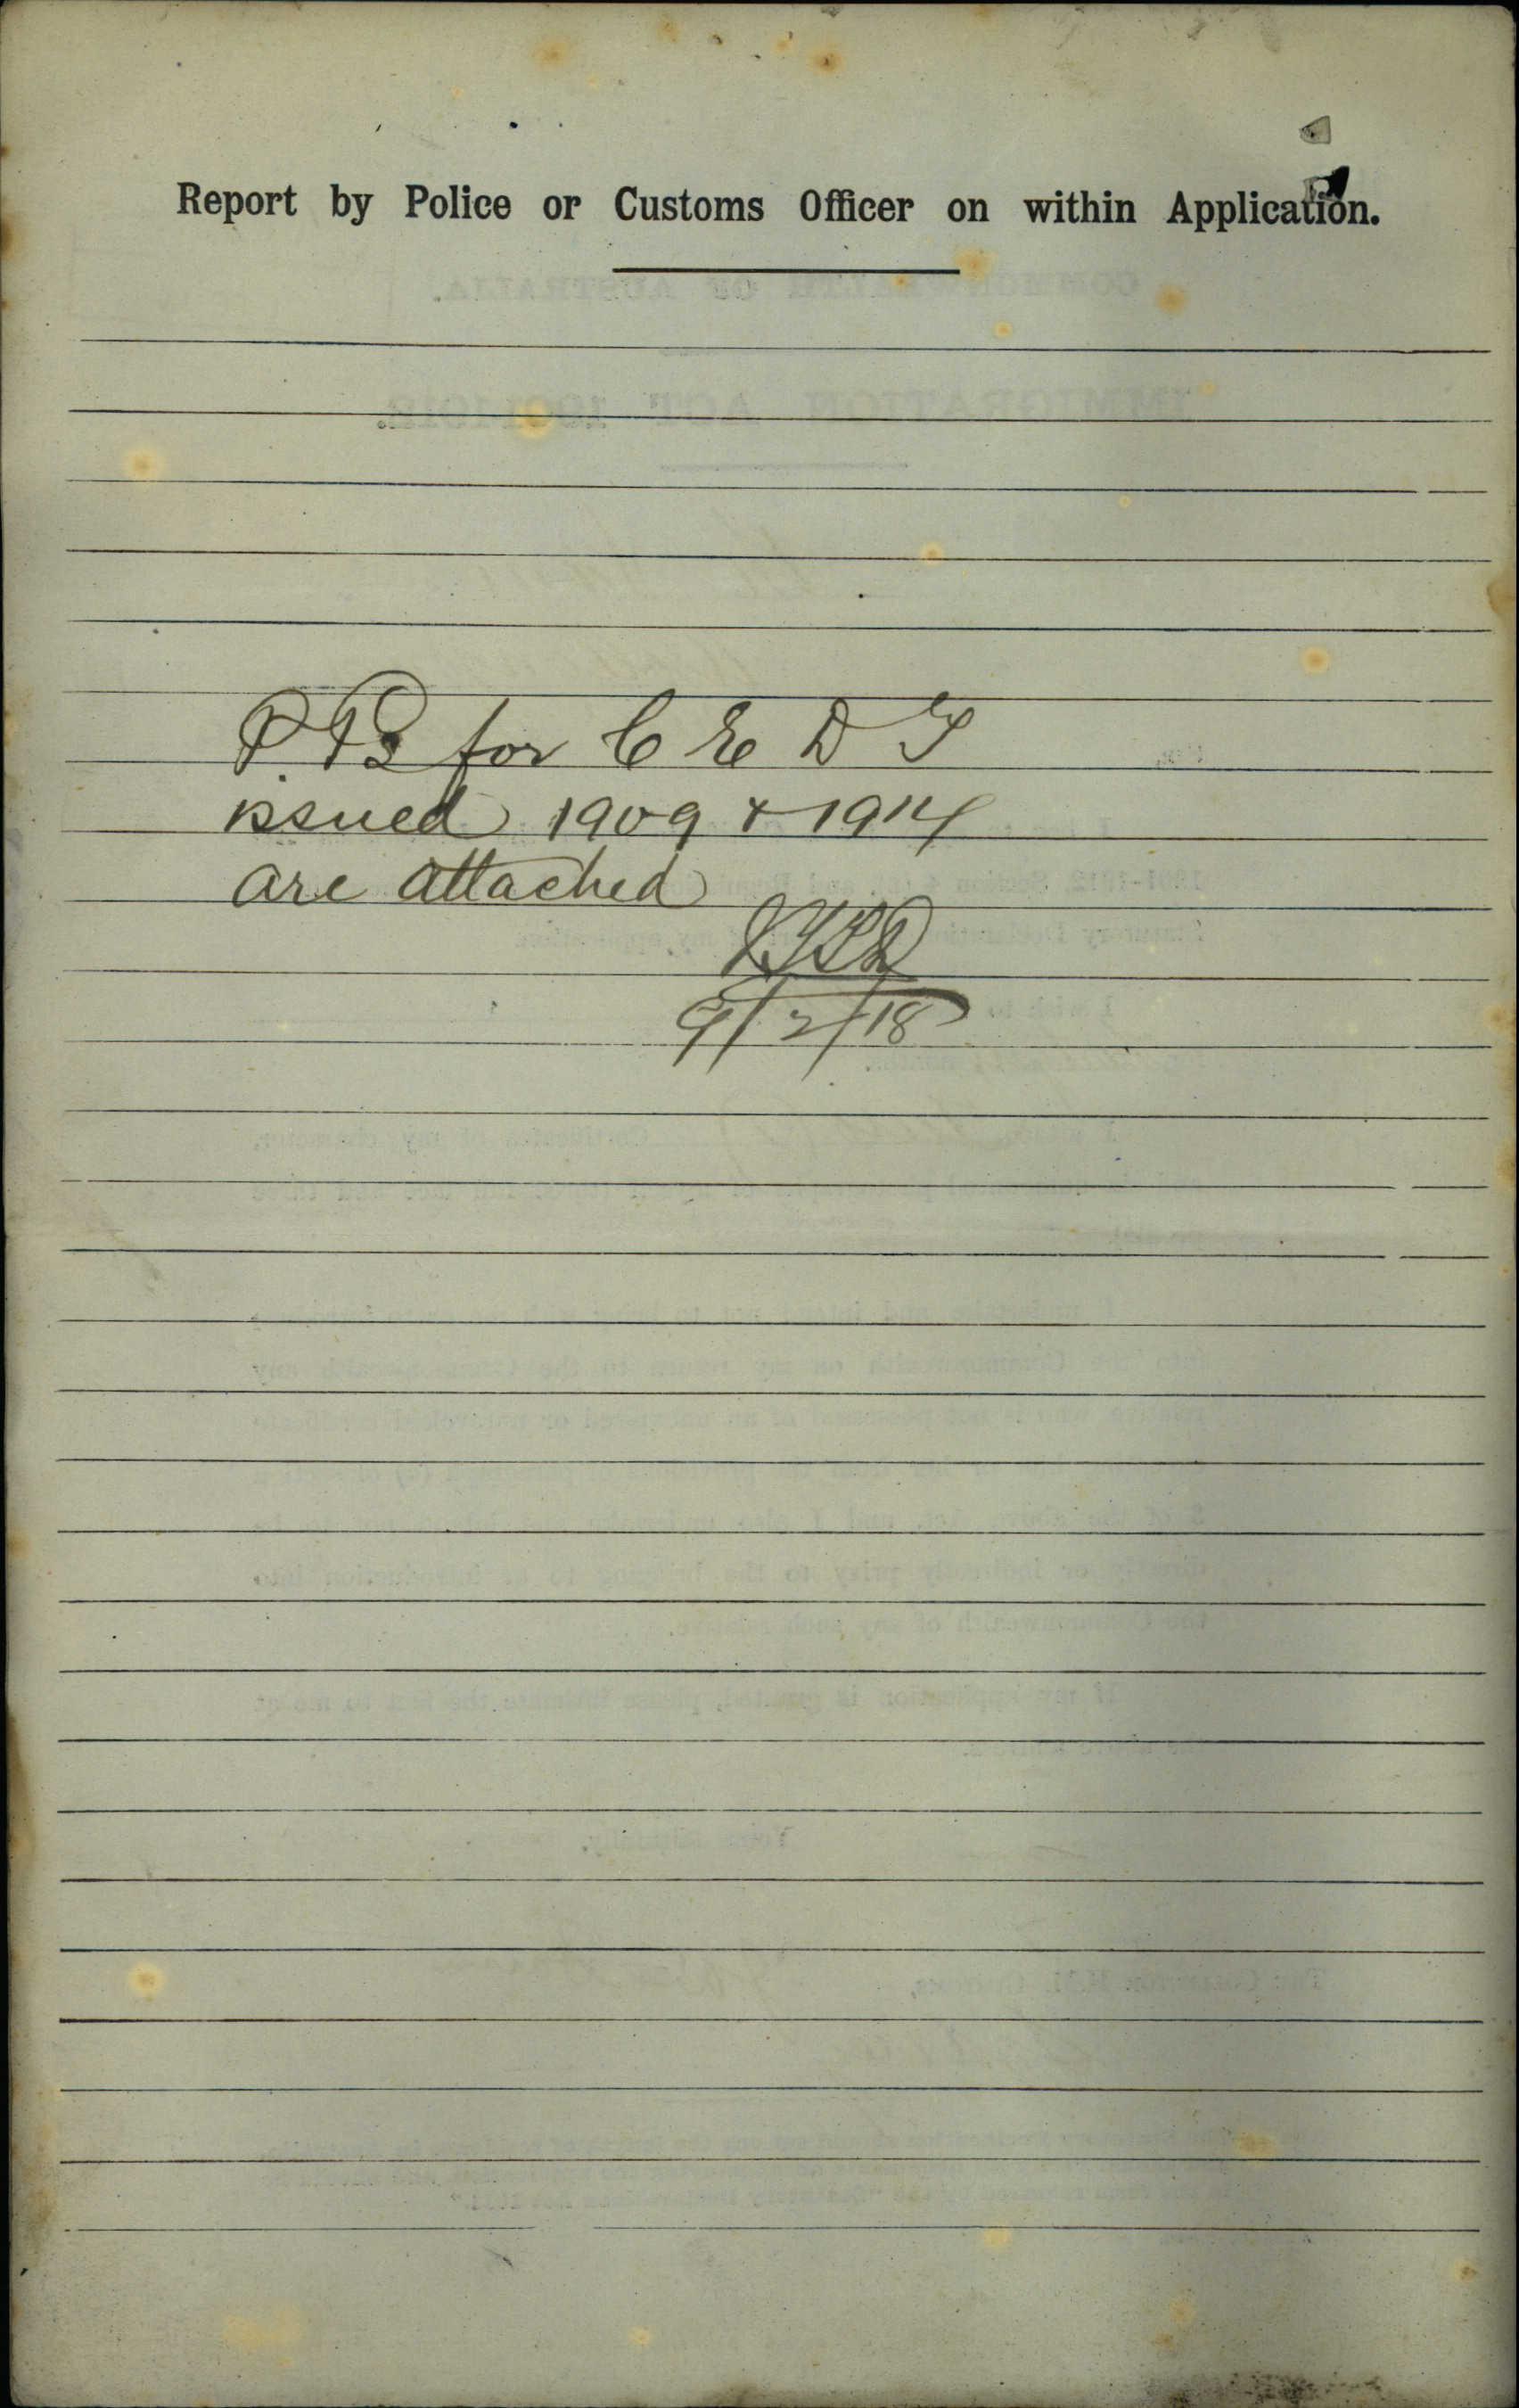 Report by Police or Customs Officer on within Application.
for C E D T
issued 1909 & 1914
are attached
9/2/18